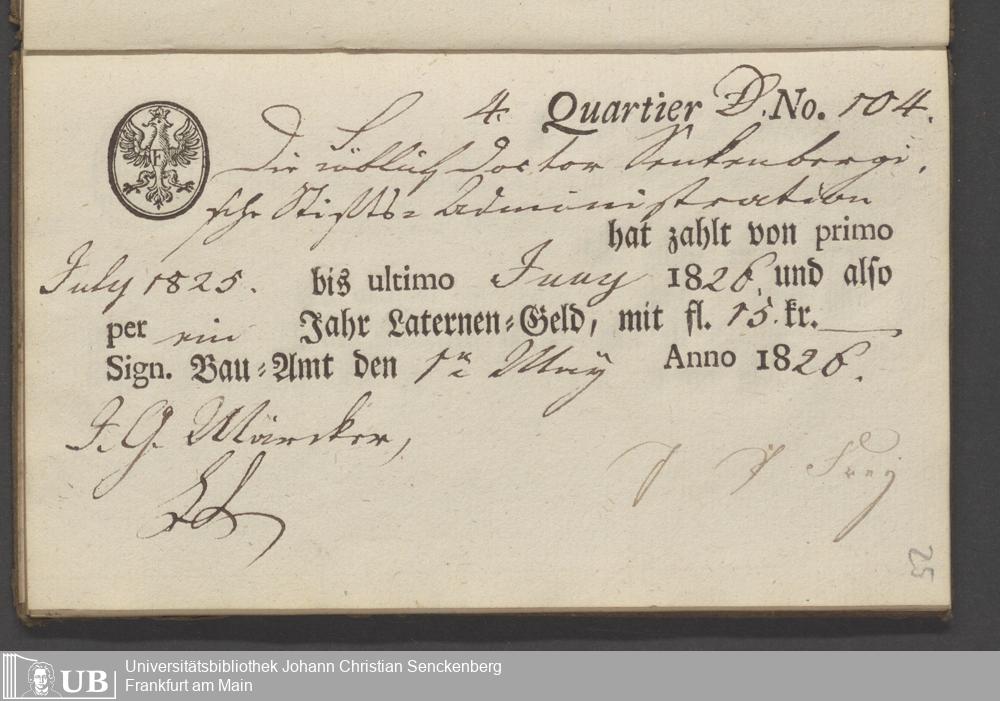 4. Quartier D. No. 104.
Die löblich Doctor Senkenbergi,
sche Stifts- Administration
hat zahlt von primo
July 1825. bis ultimo Juny 1826. und also
per ein Jahr Laternen-Geld, mit fl. 15. kr.
Sign. Bau-Amt den 1n May Anno 1826.
J. G. Märcker,
25
UB
Universitätsbibliothek Johann Christian Senckenberg
Frankfurt am Main